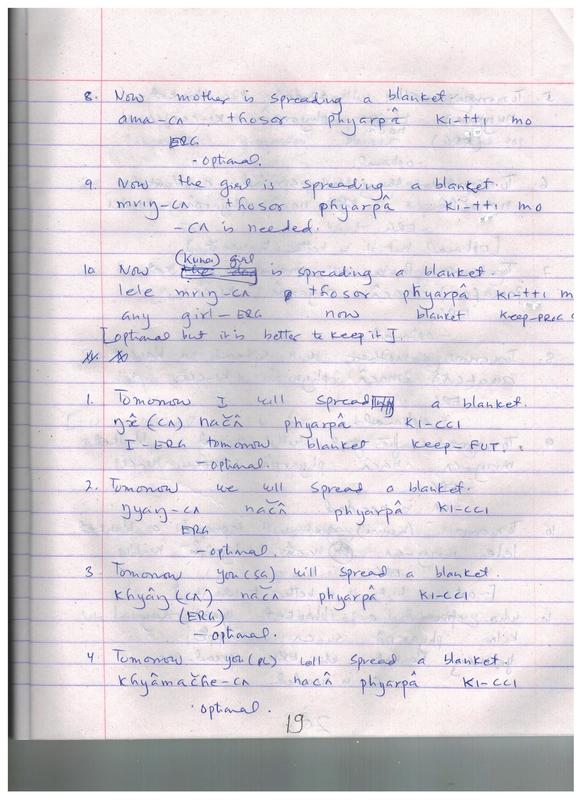 8. Now mother is spreading a blanket.
ama-cʌ thosor phyarpâ ki-tti mo
ERG
- optional.
9. Now the girl is spreading a blanket.
mriŋ-cʌ thosor phyarpâ ki-tti mo
- cʌ is needed.
(Kunai) girl
10 Now is spreading a blanket.
lele mriŋ-cʌ thosor phyarpâ ki-tti m
any girl-ERG now blanket keep-PROG
[optional but it is better to keep it].
1. Tomorrow I will spread a blanket.
(cʌ) phyarpâ ki-cci
I-ERG tomorrow blanket keep-FUT.
- optional.
2. Tomorrow we will spread a blanket.
ŋyaŋ-cʌ phyarpâ ki-cci
ERG
- optional.
3. Tomorrow you(SG) will spread a blanket.
khyâŋ (cʌ) phyarpâ ki-cci
(ERG)
- optional.
4. Tomorrow you(PL) will spread a blanket.
khyâmačhe-cʌ phyarpâ ki-cci
optional.
19